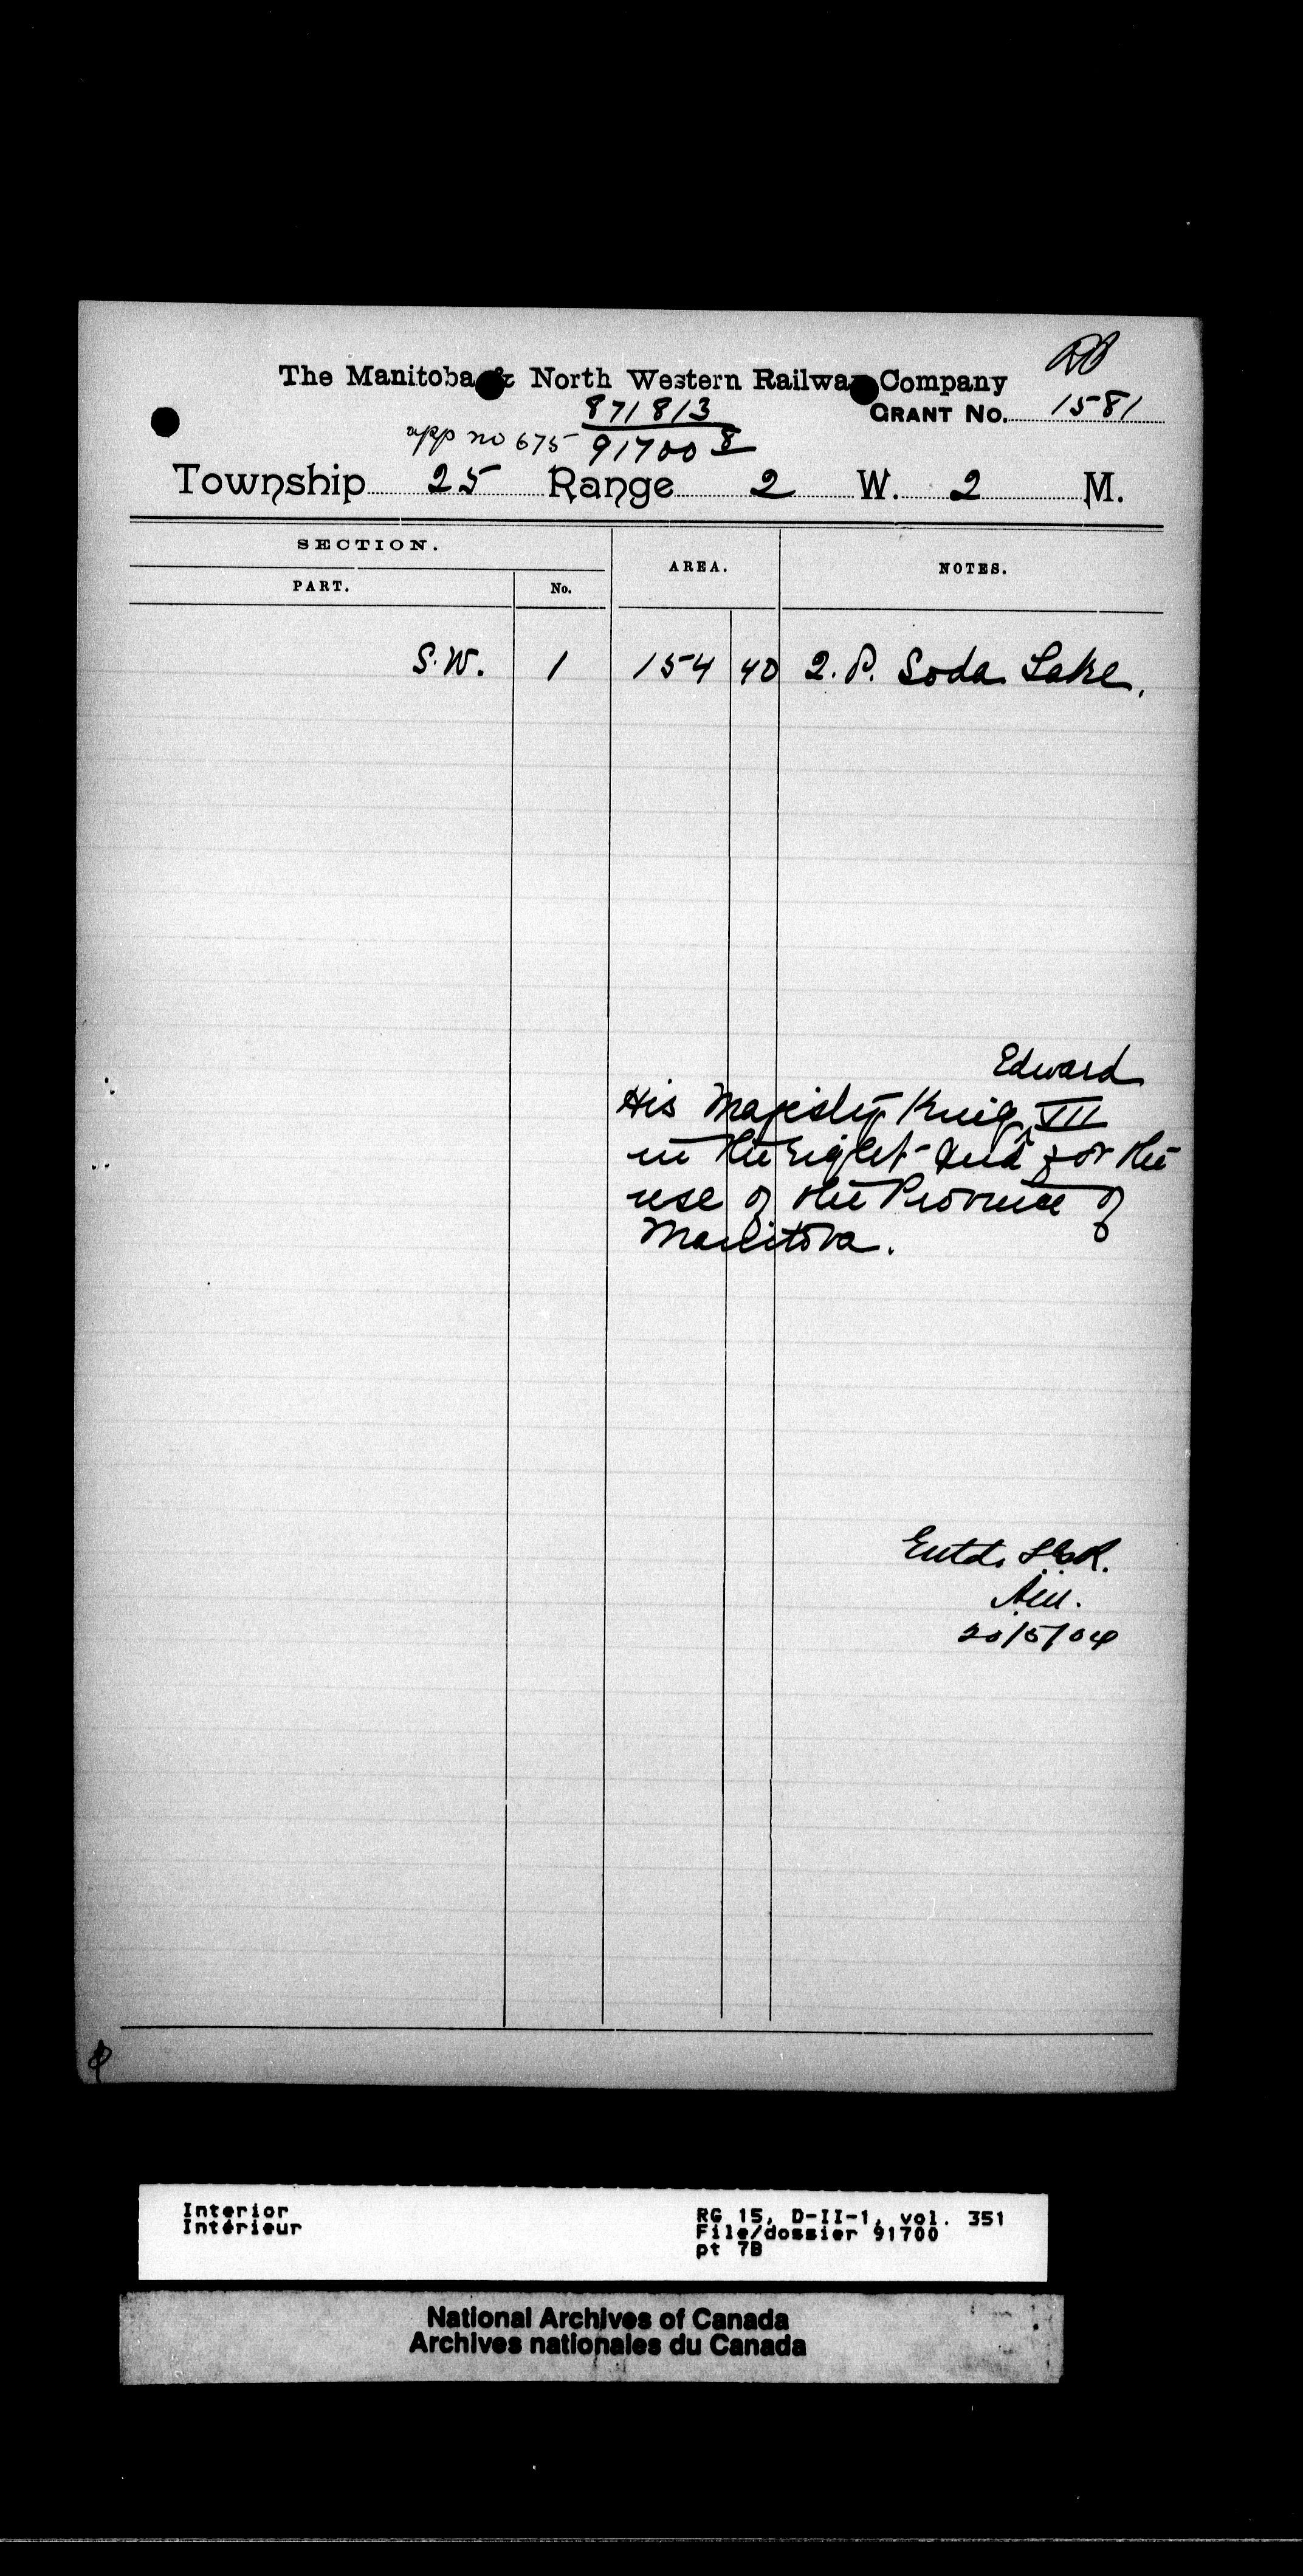 The Manitoba & North Western Railway Company
871813
GRANT No. 1581
app no 675 91700 8
Township 25 Range 2 W. 2 M.
SECTION. AREA. NOTES.
PART. No.
S.W. 1 154 40 2. P. Soda Lake.
Edward
His Majesty King ^ VII
in the right and for the
use of the Province of
Manitoba.
Entd. L.G.R.
20/5/04
Interior
Intérieur
RG 15, D-II-1, vol. 351
File/dossier 91700
pt 7B
National Archives of Canada
Archives nationales du Canada